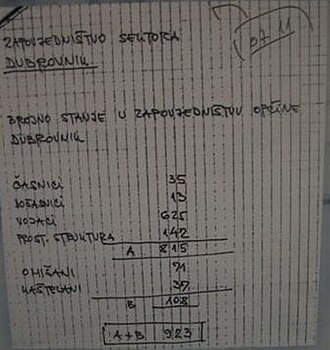 ZAPOVJEDNIŠTVO SEKTORA
DUBROVNIK
pt 11
BROJNO STANJE U ZAPOVJEDNIŠTVU OPĆINE
DUBROVNIK
ČASNICI 35
DOČASNICI 13
VOJACI 625
PROST. STRUKTURA 142
A 815
OMIŠANI 71
KAŠTELANI 37
B 108
A+B 923